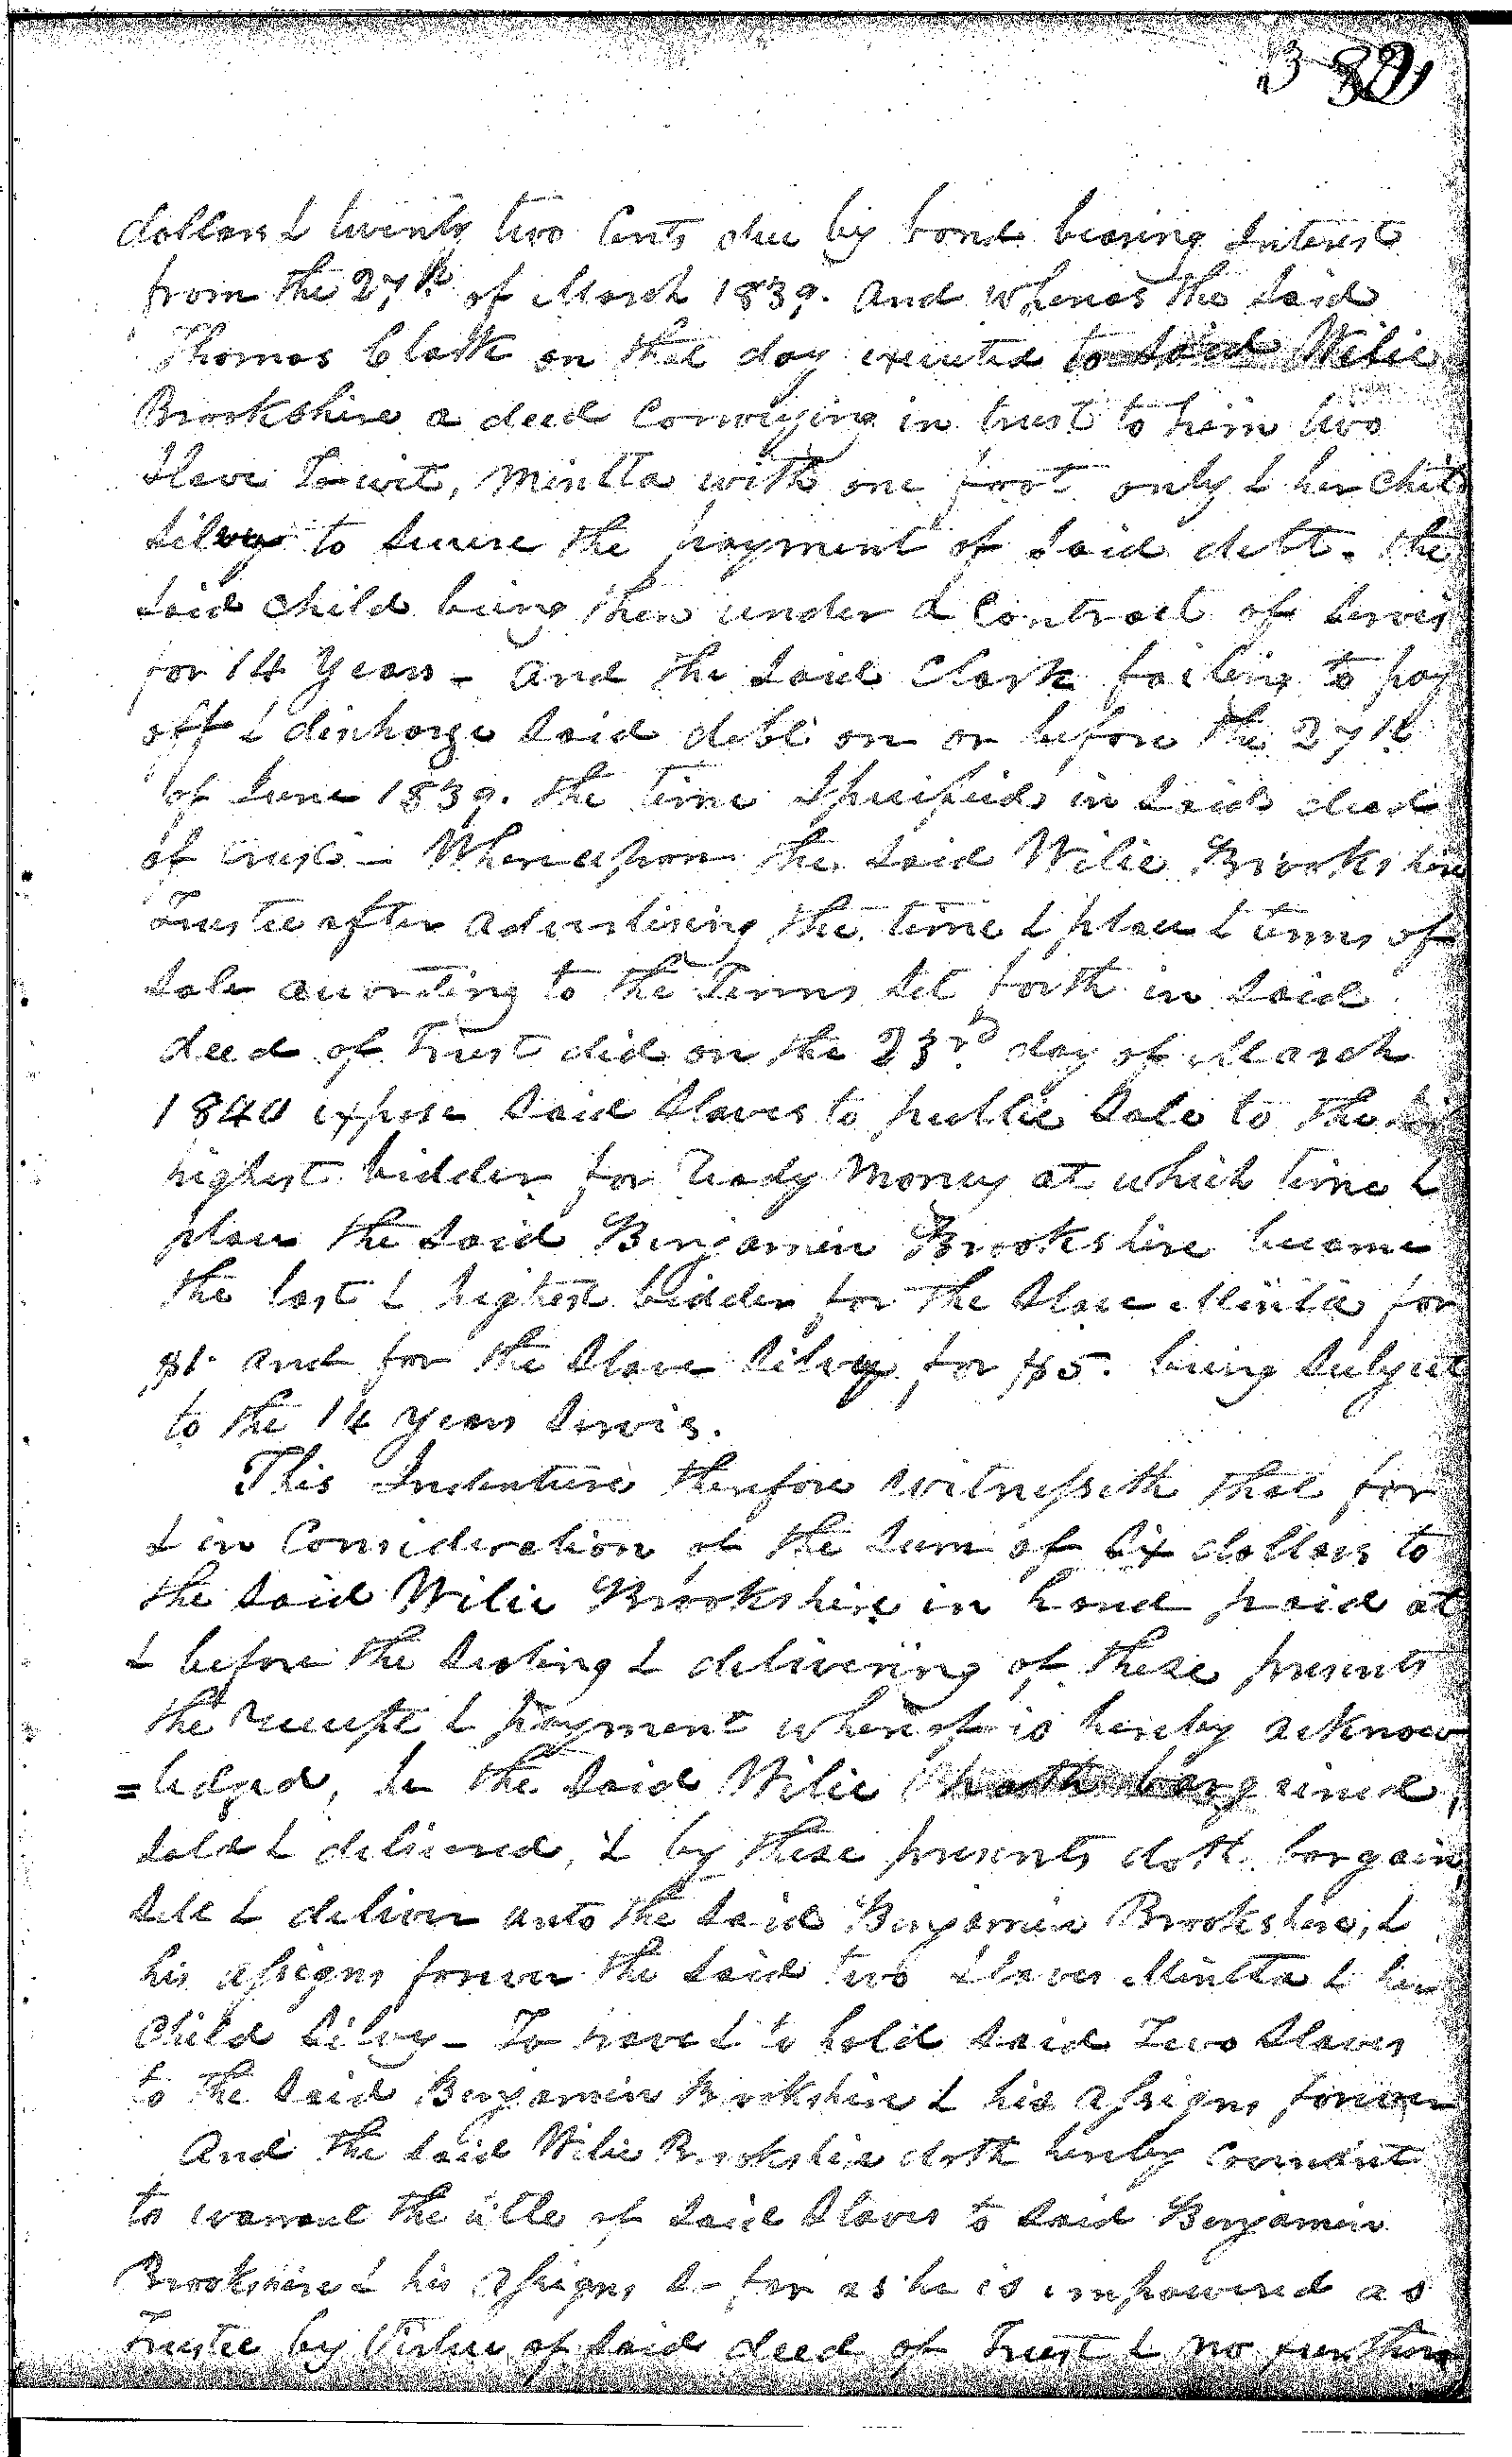 dollars & twenty two Cents due by bond bearing Interest
from the 27th of March 1839. And whereas the said
Thomas Clark on that day executed to said Wilie
Brookshire a deed Conveying in trust to him two
Slave To wit, Mintta with one foot only & her Chil
Silvy to secure the payment of said debt. the
said child being then under a Contract of servis
for 14 Years - And the said Clark failing to pay
off & discharge said debt on or before the 27th
of June 1839. the time Specified in said deed
of trust - Whereupon the said Wilie Brookshire
Trustee after advertising the time & place & terms of
sale according to the Terms set forth in said
deed of Trust did on the 23rd day of March
1840 expose said Slaves to public Sale to the
highest bidder for ready money at which time &
place the said Benjamin Brookshire became
the last & highest bidder for the Slave Mintta for
$1. and for the Slave Silvy for $5. being subject
to the 14 years servis.
This Indenture therefore witnesseth that for
& in Consideration of the sum of six dollars to
the said Wilie Brookshire in hand paid at
& before the sealing & delivering of these presents
the receipt & payment whereof is hereby acknow
=ledged, he the said Wilie hath bargained,
sold & delivered, & by these presents doth bargain,
sell & deliver unto the said Benjamin Brookshire, &
his assigns forever the said two Slaves Mintta & her
Child Silvy - To have & to hold said Two Slaves
to the said Benjamin Brookshire & his assigns forever
And the said Wilie Brookshire doth hereby covenant
to warrant the title of said Slaves to said Benjamin
Brookshire & his assigns so far as he is impowered as
Trustee by Virtue of said deed of Trust & no further